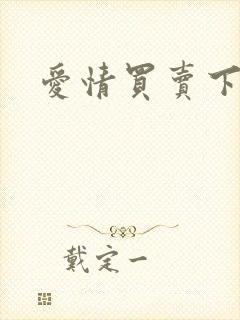 愛情買賣下
戴定一